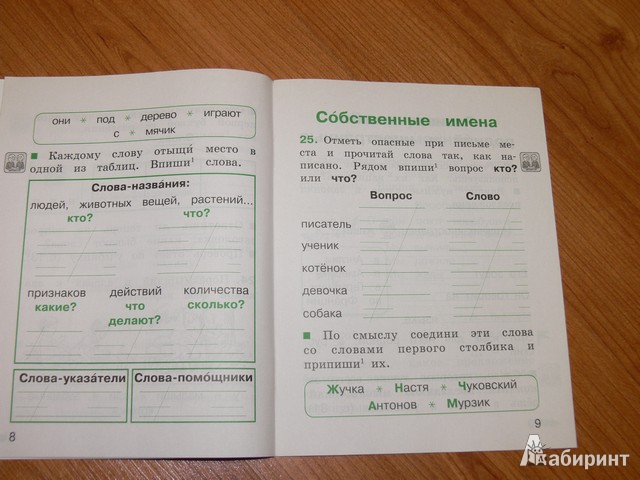 они * под * дерево * играют
с * мячик
■ Каждому слову отыщи место в
одной из таблиц. Впиши¹ слова.
Слова-назва́ния:
людей, животных вещей, растений...
кто? что?
признаков действий количества
какие? что сколько?
делают?
Слова-указа́тели Слова-помо́щники
8
Со́бственные имена
25. Отметь опасные при письме ме-
ста и прочитай слова так, как на-
писано. Рядом впиши¹ вопрос кто?
или что?
Вопрос Слово
писатель
ученик
котёнок
девочка
собака
■ По смыслу соедини эти слова
со словами первого столбика и
припиши¹ их.
Жучка * Настя * Чуковский
Антонов * Мурзик
9
Лабиринт